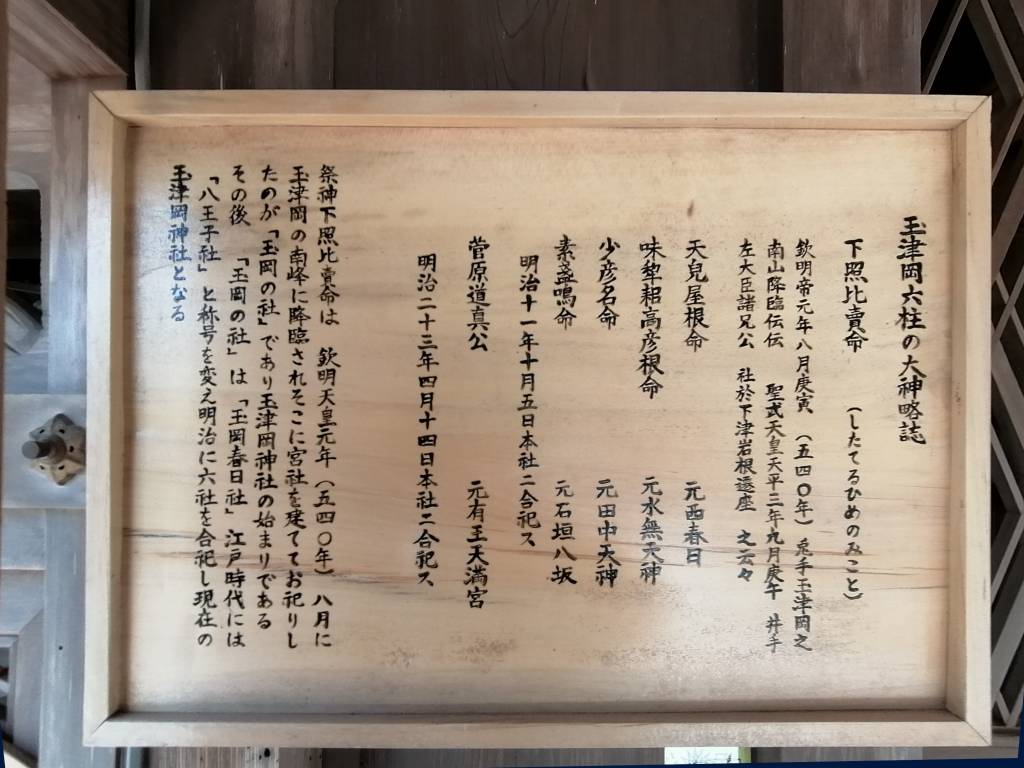 玉津岡六柱の大神略誌
下照比賣命 (したてるひめのみこと)
欽明帝元年八月庚寅 (五四〇年) 兎手玉津岡之
南山降臨伝伝 聖武天皇天平三年九月庚午 井手
左大臣諸兄公 社於下津岩根遷座 之云々
天児屋根命 元西春日
味耜高彦根命 元水無天神
少彦名命 元田中天神
素盞鳴命 元石垣八坂
明治十一年十月五日本社ニ合祀ス
菅原道真公 元有王天満宮
明治二十三年四月十四日本社ニ合祀ス
祭神下照比賣命は 欽明天皇元年 (五四〇年) 八月に
玉津岡の南峰に降臨されそこに宮社を建てお祀りし
たのが「玉岡の社」であり玉津岡神社の始まりである
その後 「玉岡の社」は「玉岡春日社」江戸時代には
「八王子社」と称号を変え明治に六社を合祀し現在の
玉津岡神社となる